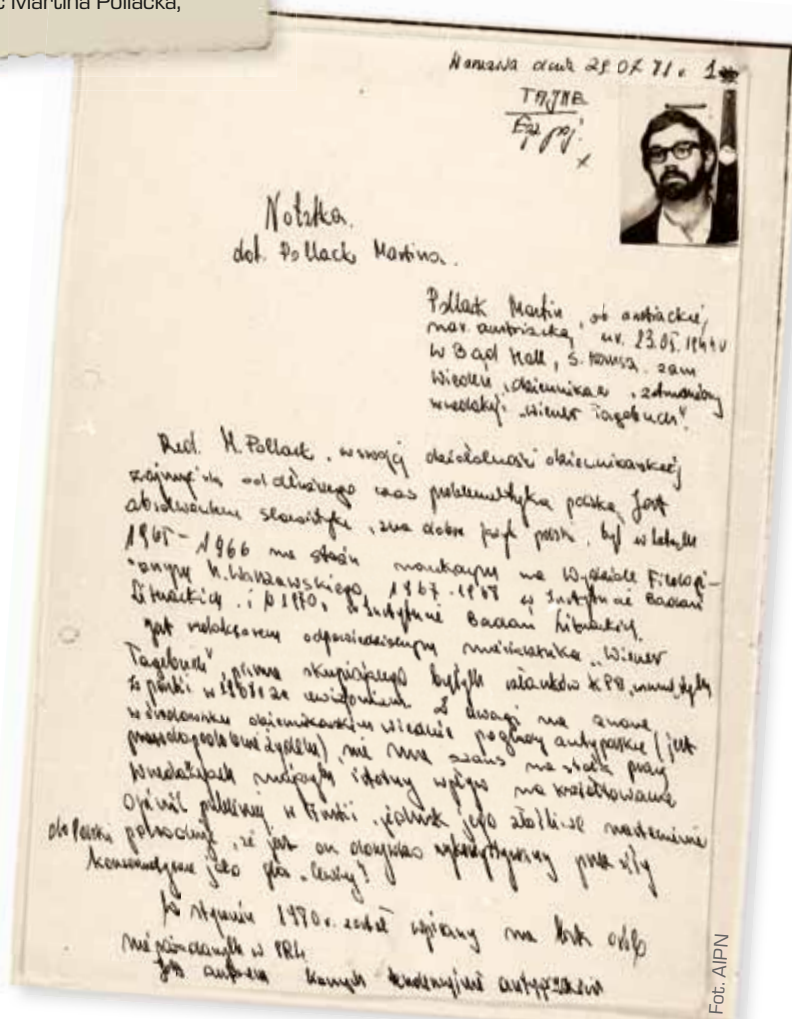 Martina Pollacka,
Warszawa dnia 29.07.71 r.
TAJNE
Egz. poj.
Notatka
dot. Pollack Martina.
Pollack Martin, ob austriackie,
nar. austriacka, ur. 23.05.1944
w Bad Hall, s. zam
Wiedeń, dziennikarz, zatrudniony
w redakcji "Wiener Tagebuch".
Red. M. Pollack, w swojej działalności dziennikarskiej
zajmuje się od dłuższego czasu problematyką polską. Jest
absolwentem slawistyki, zna dobrze język polski, był w latach
1965-1966 na stażu naukowym na Wydziale Filologi-
U. Warszawskiego, 1967-1968 w Instytucie Badań
Literackich i w 1970 r. w Instytucie Badań Literackich.
Jest redaktorem odpowiedzialnym miesięcznika "Wiener
Tagebuch", pisma skupiającego byłych członków KPA,
z partii w Z uwagi na znane
w środowisku dziennikarskim Wiednia poglądy antypolskie (jest
prawdopodobnie żydem), nie ma szans na stałą pracę
w redakcjach mających istotny wpływ na kształtowanie
opinii publicznej w Austrii, jednak jego złośliwe nastawienie
do Polski powoduje, że jest on wykorzystywany przez siły
konserwatywne jako głos "lewicy".
W styczniu 1970 r. został wpisany na listę osób
niepożądanych w PRL.
Jest autorem tendencyjnie
Fot. AIPN